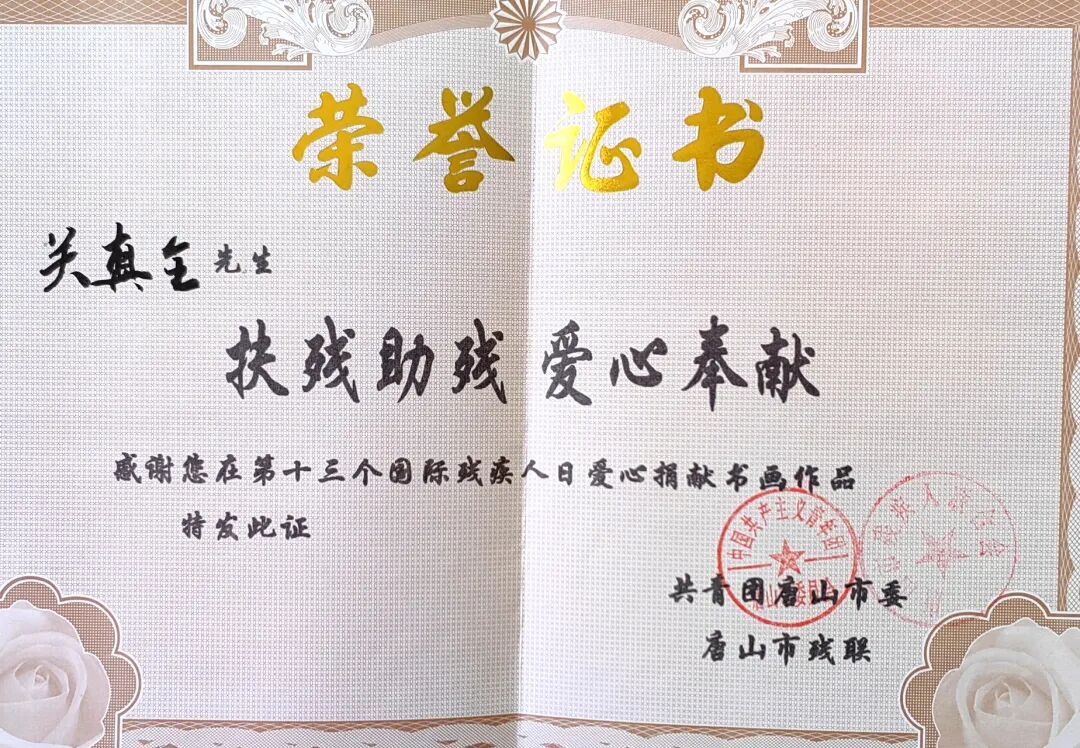 荣誉证书
关真全先生
扶残助残 爱心奉献
感谢您在第十三个国际残疾人日爱心捐献书画作品
特发此证
中国共产主义青年团
共青团唐山市委
唐山市残联